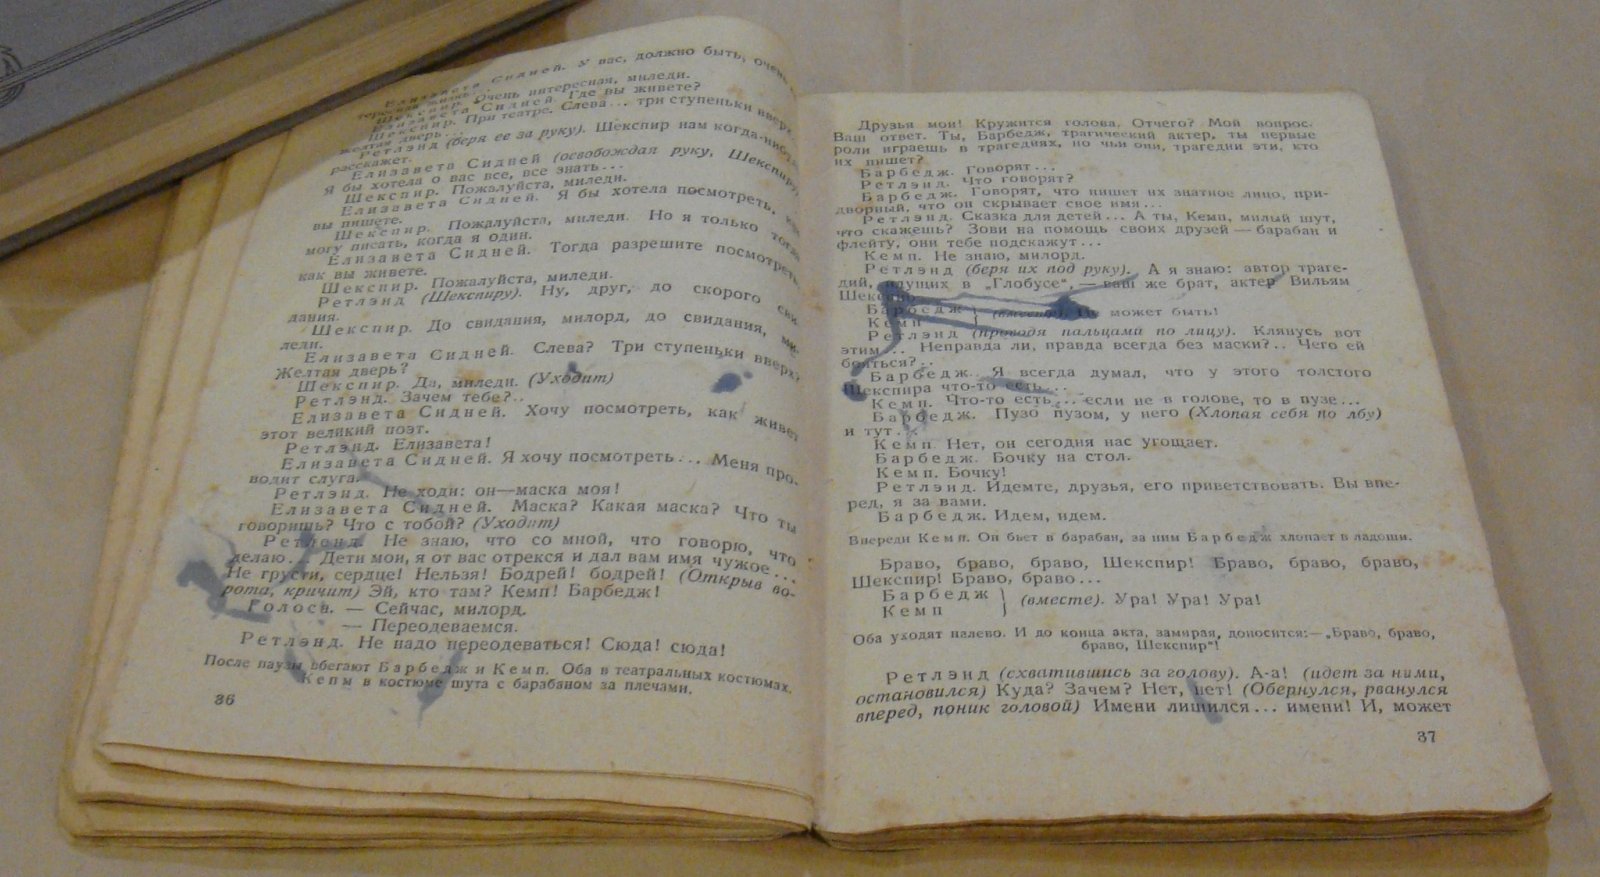 Елизавета Сидней. У вас, должно быть, очень
Шекспир. Очень интересная, миледи.
Елизавета Сидней. Где вы живете?
Шекспир. При театре. Слева... три ступеньки вверх.
желтая дверь...
Ретлэнд (беря ее за руку). Шекспир нам когда-нибудь
расскажет.
Елизавета Сидней (освобождая руку, Шекспиру).
Я бы хотела о вас все, все знать...
Шекспир. Пожалуйста, миледи.
Елизавета Сидней. Я бы хотела посмотреть, как
вы пишете.
Шекспир. Пожалуйста, миледи. Но я только тогда
могу писать, когда я один.
Елизавета Сидней. Тогда разрешите посмотреть,
как вы живете.
Шекспир. Пожалуйста, миледи.
Ретлэнд (Шекспиру). Ну, друг, до скорого сви-
дания.
Шекспир. До свидания, милорд, до свидания, ми-
леди.
Елизавета Сидней. Слева? Три ступеньки вверх?
Желтая дверь?
Шекспир. Да, миледи. (Уходит)
Ретлэнд. Зачем тебе?..
Елизавета Сидней. Хочу посмотреть, как живет
этот великий поэт.
Ретлэнд. Елизавета!
Елизавета Сидней. Я хочу посмотреть... Меня про-
водит слуга.
Ретлэнд. Не ходи: он—маска моя!
Елизавета Сидней. Маска? Какая маска? Что ты
говоришь? Что с тобой? (Уходит)
Ретлэнд. Не знаю, что со мной, что говорю, что
делаю... Дети мои, я от вас отрекся и дал вам имя чужое...
Не грусти, сердце! Нельзя! Бодрей! бодрей! (Открыв во-
рота, кричит) Эй, кто там? Кемп! Барбедж!
Голоса. — Сейчас, милорд.
— Переодеваемся.
Ретлэнд. Не надо переодеваться! Сюда! сюда!
После паузы вбегают Барбедж и Кемп. Оба в театральных костюмах.
Кемп в костюме шута с барабаном за плечами.
36
Друзья мои! Кружится голова. Отчего? Мой вопрос.
Ваш ответ. Ты, Барбедж, трагический актер, ты первые
роли играешь в трагедиях, но чьи они, трагедии эти, кто
их пишет?
Барбедж. Говорят...
Ретлэнд. Что говорят?
Барбедж. Говорят, что пишет их знатное лицо, при-
дворный, что он скрывает свое имя...
Ретлэнд. Сказка для детей... А ты, Кемп, милый шут,
что скажешь? Зови на помощь своих друзей — барабан и
флейту, они тебе подскажут...
Кемп. Не знаю, милорд.
Ретлэнд (беря их под руку). А я знаю: автор траге-
дий, идущих в „Глобусе“, — ваш же брат, актер Вильям
Шекспир.
Барбедж
Кемп } (вместе). Не может быть!
Ретлэнд (проводя пальцами по лицу). Клянусь вот
этим... Неправда ли, правда всегда без маски?.. Чего ей
бояться?..
Барбедж. Я всегда думал, что у этого толстого
Шекспира что-то есть...
Кемп. Что-то есть... если не в голове, то в пузе...
Барбедж. Пузо пузом, у него (Хлопая себя по лбу)
и тут...
Кемп. Нет, он сегодня нас угощает.
Барбедж. Бочку на стол.
Кемп. Бочку!
Ретлэнд. Идемте, друзья, его приветствовать. Вы впе-
ред, я за вами.
Барбедж. Идем, идем.
Впереди Кемп. Он бьет в барабан, за ним Барбедж хлопает в ладоши.
Браво, браво, браво, Шекспир! Браво, браво, браво,
Шекспир! Браво, браво...
Барбедж
Кемп } (вместе). Ура! Ура! Ура!
Оба уходят налево. И до конца акта, замирая, доносится:—„Браво, браво,
браво, Шекспир“!
Ретлэнд (схватившись за голову). А-а! (идет за ними,
остановился) Куда? Зачем? Нет, нет! (Обернулся, рванулся
вперед, поник головой) Имени лишился... имени! И, может
37